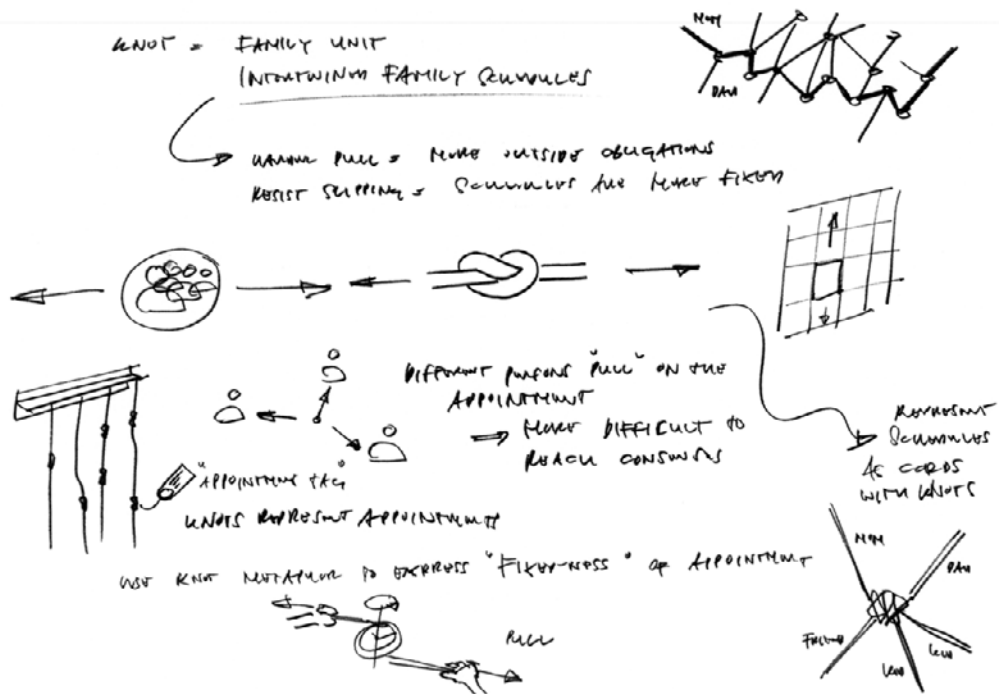 KNOT = FAMILY UNIT
INTERTWINED FAMILY SCHEDULES
MOM
DAD
HARDER PULL = MORE OUTSIDE OBLIGATIONS
RESIST SLIPPING = SCHEDULES ARE MORE FIXED
DIFFERENT PERSONS "PULL" ON THE
APPOINTMENT
MORE DIFFICULT TO
REACH CONSENSUS
REPRESENT
SCHEDULES
AS CORDS
WITH KNOTS
"APPOINTMENT TAG"
KNOTS REPRESENT APPOINTMENTS
USE KNOT METAPHOR TO EXPRESS "FIXED-NESS" OF APPOINTMENT
PULL
MOM
DAD
FRIEND